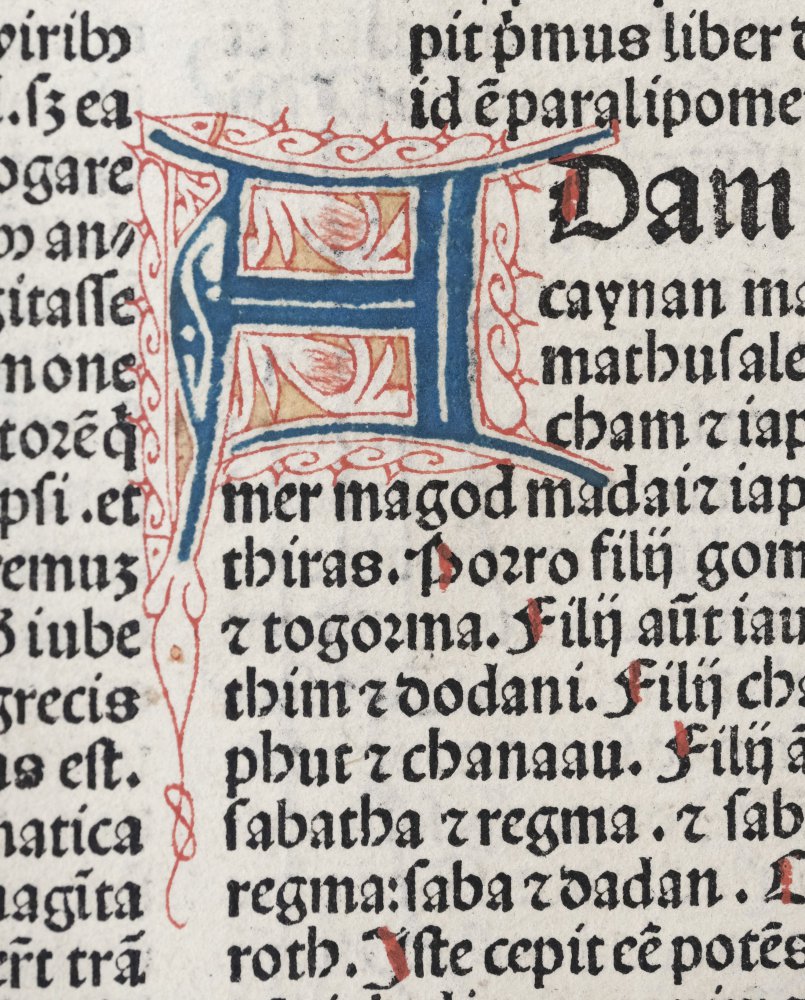 viribꝰ
.ſꝫ ea
ogare
an⸗
gitaſſe
mone
toꝛē ꝙ
pſi .et
remuꝫ
iube
grecis
us eſt.
matica
magīta
er̄t trā
pit p̄mus liber d
id ē paralipome
ADam
caynan ma
mathuſale
cham ⁊ iap
mer magod madai ⁊ iap
thiras. Poꝛro filij gom
⁊ togoꝛma. Filij aūt iau
thim ⁊ dodani. Filij cha
phut ⁊ chanaau. Filij ā
ſabatha ⁊ regma . ⁊ ſab
regma: ſaba ⁊ dadan .
roth. Iſte cepit eē potēs